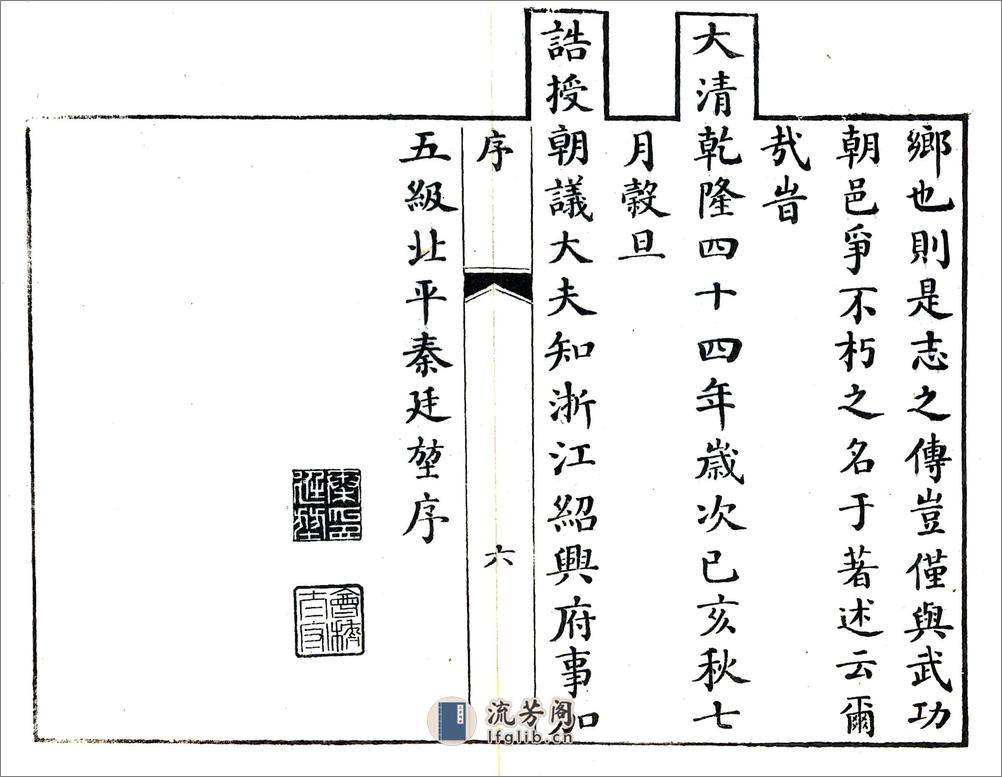 鄉也則是志之傳豈僅與武功
朝邑爭不朽之名于著述云爾
哉旹
大清乾隆四十四年歲次己亥秋七
月穀旦
誥授朝議大夫知浙江紹興府事加
序
六
五級北平秦廷堃序
秦印廷堃
會稽太守
流芳阁
lfglib.cn